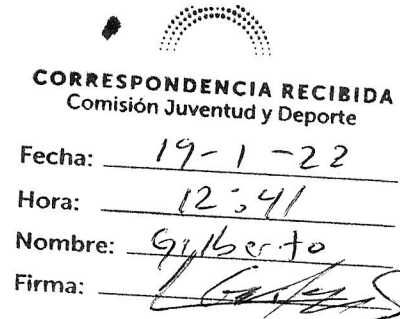 CORRESPONDENCIA RECIBIDA
Comisión Juventud y Deporte
Fecha: 19-1-22
Hora: 12:41
Nombre: Gilberto
Firma: